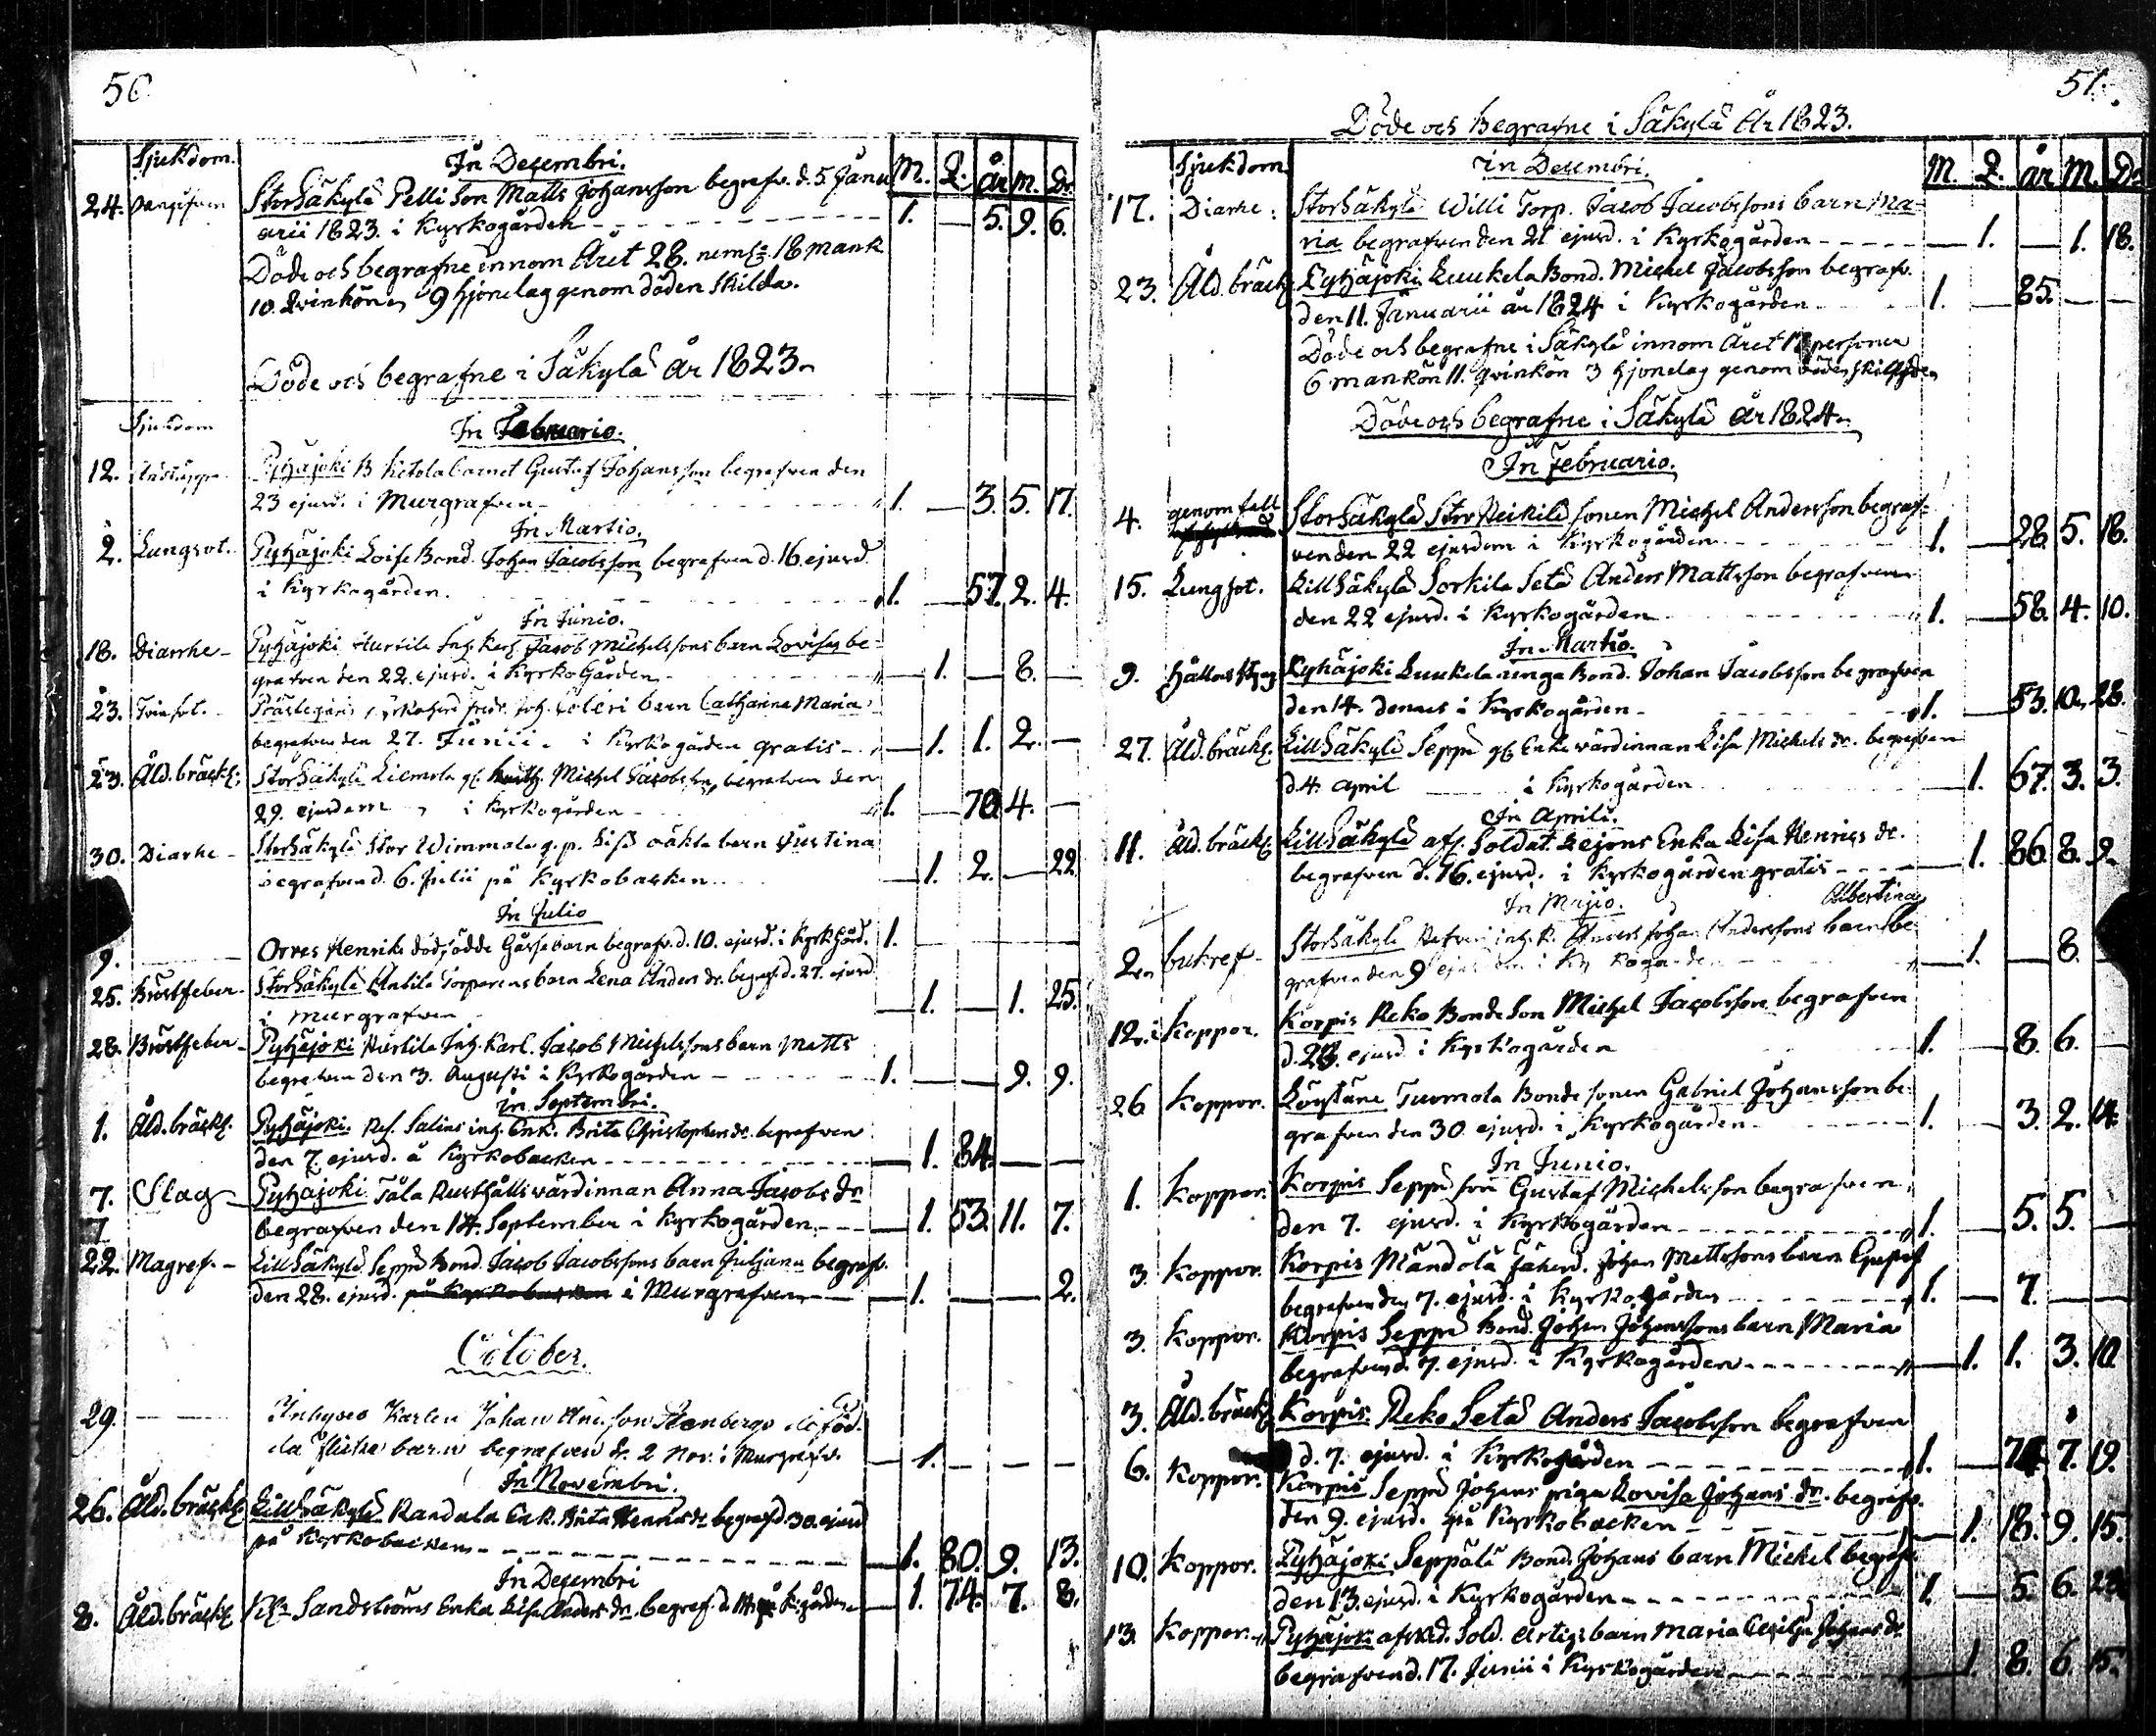 50
Sjukdom. In Decembri. M. Q. år m. D.
24. StorSäkylä Pelli Son Matts Johansson begrafv. d. 5. Janu
arii 1823. i Kyrkogården 1. — 5. 9. 6.
Döde och begrafne innom Året 28. neml. 18 mank
10. Qvinkön, 9 hjonelag genom döden skilda.
Döde och begrafne i Säkylä år 1823.
Sjukdom
In Februario.
12. Pyhäjoki Ketola barnet Gustaf Johansson begrafven den
23 ejusd. i Murgrafven 1. — 3. 5. 17.
In Martio.
2. Lungsot. Pyhäjoki Loise Bond. Johan Jacobsson begrafven d. 16. ejusd.
i Kyrkogården. 1. — 57. 2. 4.
In Junio.
18. Diarrhe Pyhäjoki Hurtila Inh. Karl. Jacob Michelssons barn Lovisa be-
grafven den 22. ejusd. i KyrkoGården — 1. — 8. —
23. Tvinsot. Prästegård barn Catharina Maria
begrafven den 27. Junii. i Kyrkogården gratis — 1. 1. 2. —
23. Åld. bräckl. StorSäkylä Liemola Michel Jacobsson begrafven den
29. ejusdem i Kyrkogården 1. — 70 4. —
30. Diarhe StorSäkylä Stor Wimmala q. p. oäkta barn Justina
begrafven d. 6. Julii på Kyrkobacken — 1. 2. — 22.
In Julio
9. — Orres Henriks dödfödde Gåssebarn begrafv. d. 10. ejusd. i KyrkGård. 1.
25. Bröstfeber StorSäkylä Anttila Torparens barn Lena Anders dr. begraf. d. 27. ejusd
i murgrafven — 1. — 1. 25.
28. Bröstfeber Pyhäjoki Hurtila Inh. Karl. Jacob Michelssons barn Matts
begrafven den 3. Augusti i Kyrkogården 1. — — 9. 9.
in Septembri.
1. Åld. bräckl. Pyhäjoki. Salins inh. Enk. Brita Christophers dr. begrafven
den 7. ejusd. å Kyrkobacken — 1. 84. — —
7. Slag Pyhäjoki Täla Rusthålls värdinnan Anna Jacobs dr
begrafven den 14. September i Kyrkogården — 1. 53. 11. 7.
22. Magref. LillSäkylä Seppä Bond. Jacob Jacobssons barn Juliana begrafv.
den 28. ejusd. på Kyrkobacken i Murgrafven — 1. — — 2.
October.
29. — Inhyses Karlen Johan Stenbergs död föd-
da flicke barn begrafven d. 2 Nov: i Murgrafv. — 1. — — —
In Novembri.
26. Åld. bräckl. LillSäkylä Randala Enk. Brita Henrics dr begraf d. 30. ejusd
på Kyrkobacken — 1. 80. 9. 13.
In Decembri
8. Åld. bräckl. Sandströms Enka Lisa Anders dr. begraf. d. K:gården — 1. 74. 7. 8.
51.
Döde och Begrafne i Säkylä År 1823.
Sjukdom in Decembri. M. Q. år M. D.
17. Diarhe: StorSäkylä Willi Torp. Jacob Jacobssons barn Ma-
ria begrafven den 21 ejusd. i Kyrkogården — 1. — 1. 18.
23. Åld. bräckl. Pyhäjoki Luukela Bond. Michel Jacobsson begrafv.
den 11. Januarii år 1824 i Kyrkogården 1. — 85. — —
Döde och begrafne i Säkylä innom Året 17 personer
6 mankön 11. qvinkön 3 hjonelag genom döden skillgde
Döde och begrafne i Säkylä år 1824.
In Februario.
4. genom fall StorSäkylä Stor Heikilä sonen Michel Andersson begraf-
ven den 22 ejusdem i Kyrkogården 1. — 28. 5. 18.
15. Lungsot. LillSäkylä Sorkila Setä Anders Mattsson begrafven
den 22 ejusd. i Kyrkogården 1. — 58. 4. 10.
In Martio.
9. Håll och Styng Pyhäjoki Luukela unga Bond. Johan Jacobsson begrafven
den 14. dennes i Kyrkogården 1. — 53. 10. 28.
27. Åld. bräckl. LillSäkylä Seppä gl. Enke värdinnan Lisa Michels dr. begrafven
d. 4. April i Kyrkogården — 1. 67. 3. 3.
In Aprili.
11. Åld. bräckl. LillSäkylä afs. Soldat. Lejons Enka Lisa Henrics dr.
begrafven d. 16. ejusd. i Kyrkogården gratis — 1. 86 8. 9.
In Majio. Albertina
2. bukref StorSäkylä inh. k. Anders Johan Anderssons barn be-
grafven den 9 ejusdem i Kyrkogården — 1. — 8. —
12. Koppor. Korpis Reko Bonde Son Michel Jacobsson begrafven
d. 23. ejusd. i Kyrkogården 1. — 8. 6. —
26 Koppor. Löystäne Tuomola Bonde sonen Gabriel Johansson be-
grafven den 30. ejusd. i Kyrkogården 1. — 3. 2. 14.
In Junio.
1. Koppor. Korpis Seppä son Gustaf Michelsson begrafven
den 7. ejusd. i Kyrkogården 1. — 5. 5. —
3. Koppor. Korpis Mandola Johan Mattssons barn Gustaf
begrafven den 7. ejusd. i Kyrkogården 1. — 7. — —
3. Koppor. Korpis Seppä Bond. Johan Johanssons barn Maria
begrafven d. 7. ejusd. i Kyrkogården — 1. 1. 3. 10
3. Åld. bräckl. Korpis Reko Setä Anders Jacobsson begrafven
d. 7. ejusd. i Kyrkogården 1. — 74. 7. 19.
6. Koppor. Korpis Seppä Johans piga Lovisa Johans dr. begrafv.
den 9. ejusd. på Kyrkobacken — 1. 18. 9. 15.
10. Koppor. Pyhäjoki Seppälä Bond. Johans barn Michel begrafv.
den 13. ejusd. i Kyrkogården 1. — 5. 6. 23.
13. Koppor. Pyhäjoki afsked. Sold. Artigs barn Maria Cecilia Johans dr
begrafven d. 17. Junii i Kyrkogården — 1. 8. 6. 15.